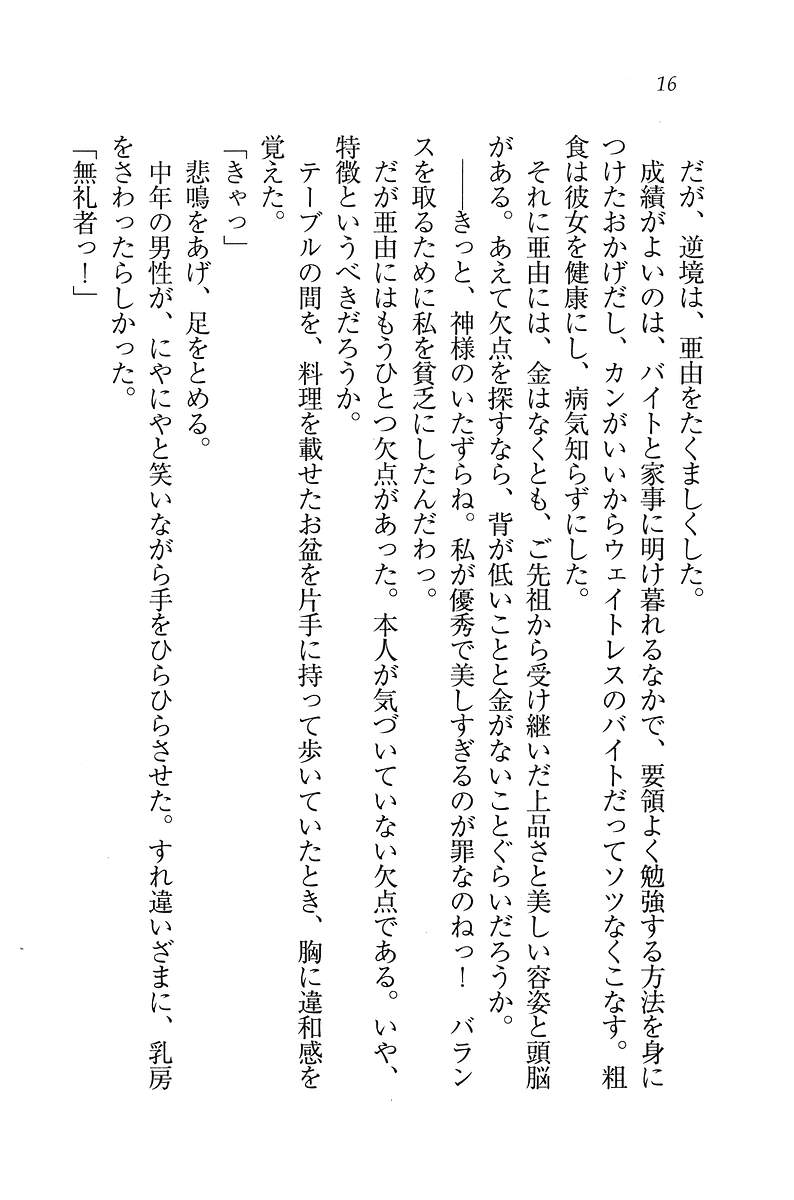 16
　だが、逆境は、亜由をたくましくした。
　成績がよいのは、バイトと家事に明け暮れるなかで、要領よく勉強する方法を身に
つけたおかげだし、カンがいいからウェイトレスのバイトだってソツなくこなす。粗
食は彼女を健康にし、病気知らずにした。
　それに亜由には、金はなくとも、ご先祖から受け継いだ上品さと美しい容姿と頭脳
がある。あえて欠点を探すなら、背が低いことと金がないことぐらいだろうか。
　――きっと、神様のいたずらね。私が優秀で美しすぎるのが罪なのねっ！　バラン
スを取るために私を貧乏にしたんだわっ。
　だが亜由にはもうひとつ欠点があった。本人が気づいていない欠点である。いや、
特徴というべきだろうか。
　テーブルの間を、料理を載せたお盆を片手に持って歩いていたとき、胸に違和感を
覚えた。
「きゃっ」
　悲鳴をあげ、足をとめる。
　中年の男性が、にやにやと笑いながら手をひらひらさせた。すれ違いざまに、乳房
をさわったらしかった。
「無礼者っ！」